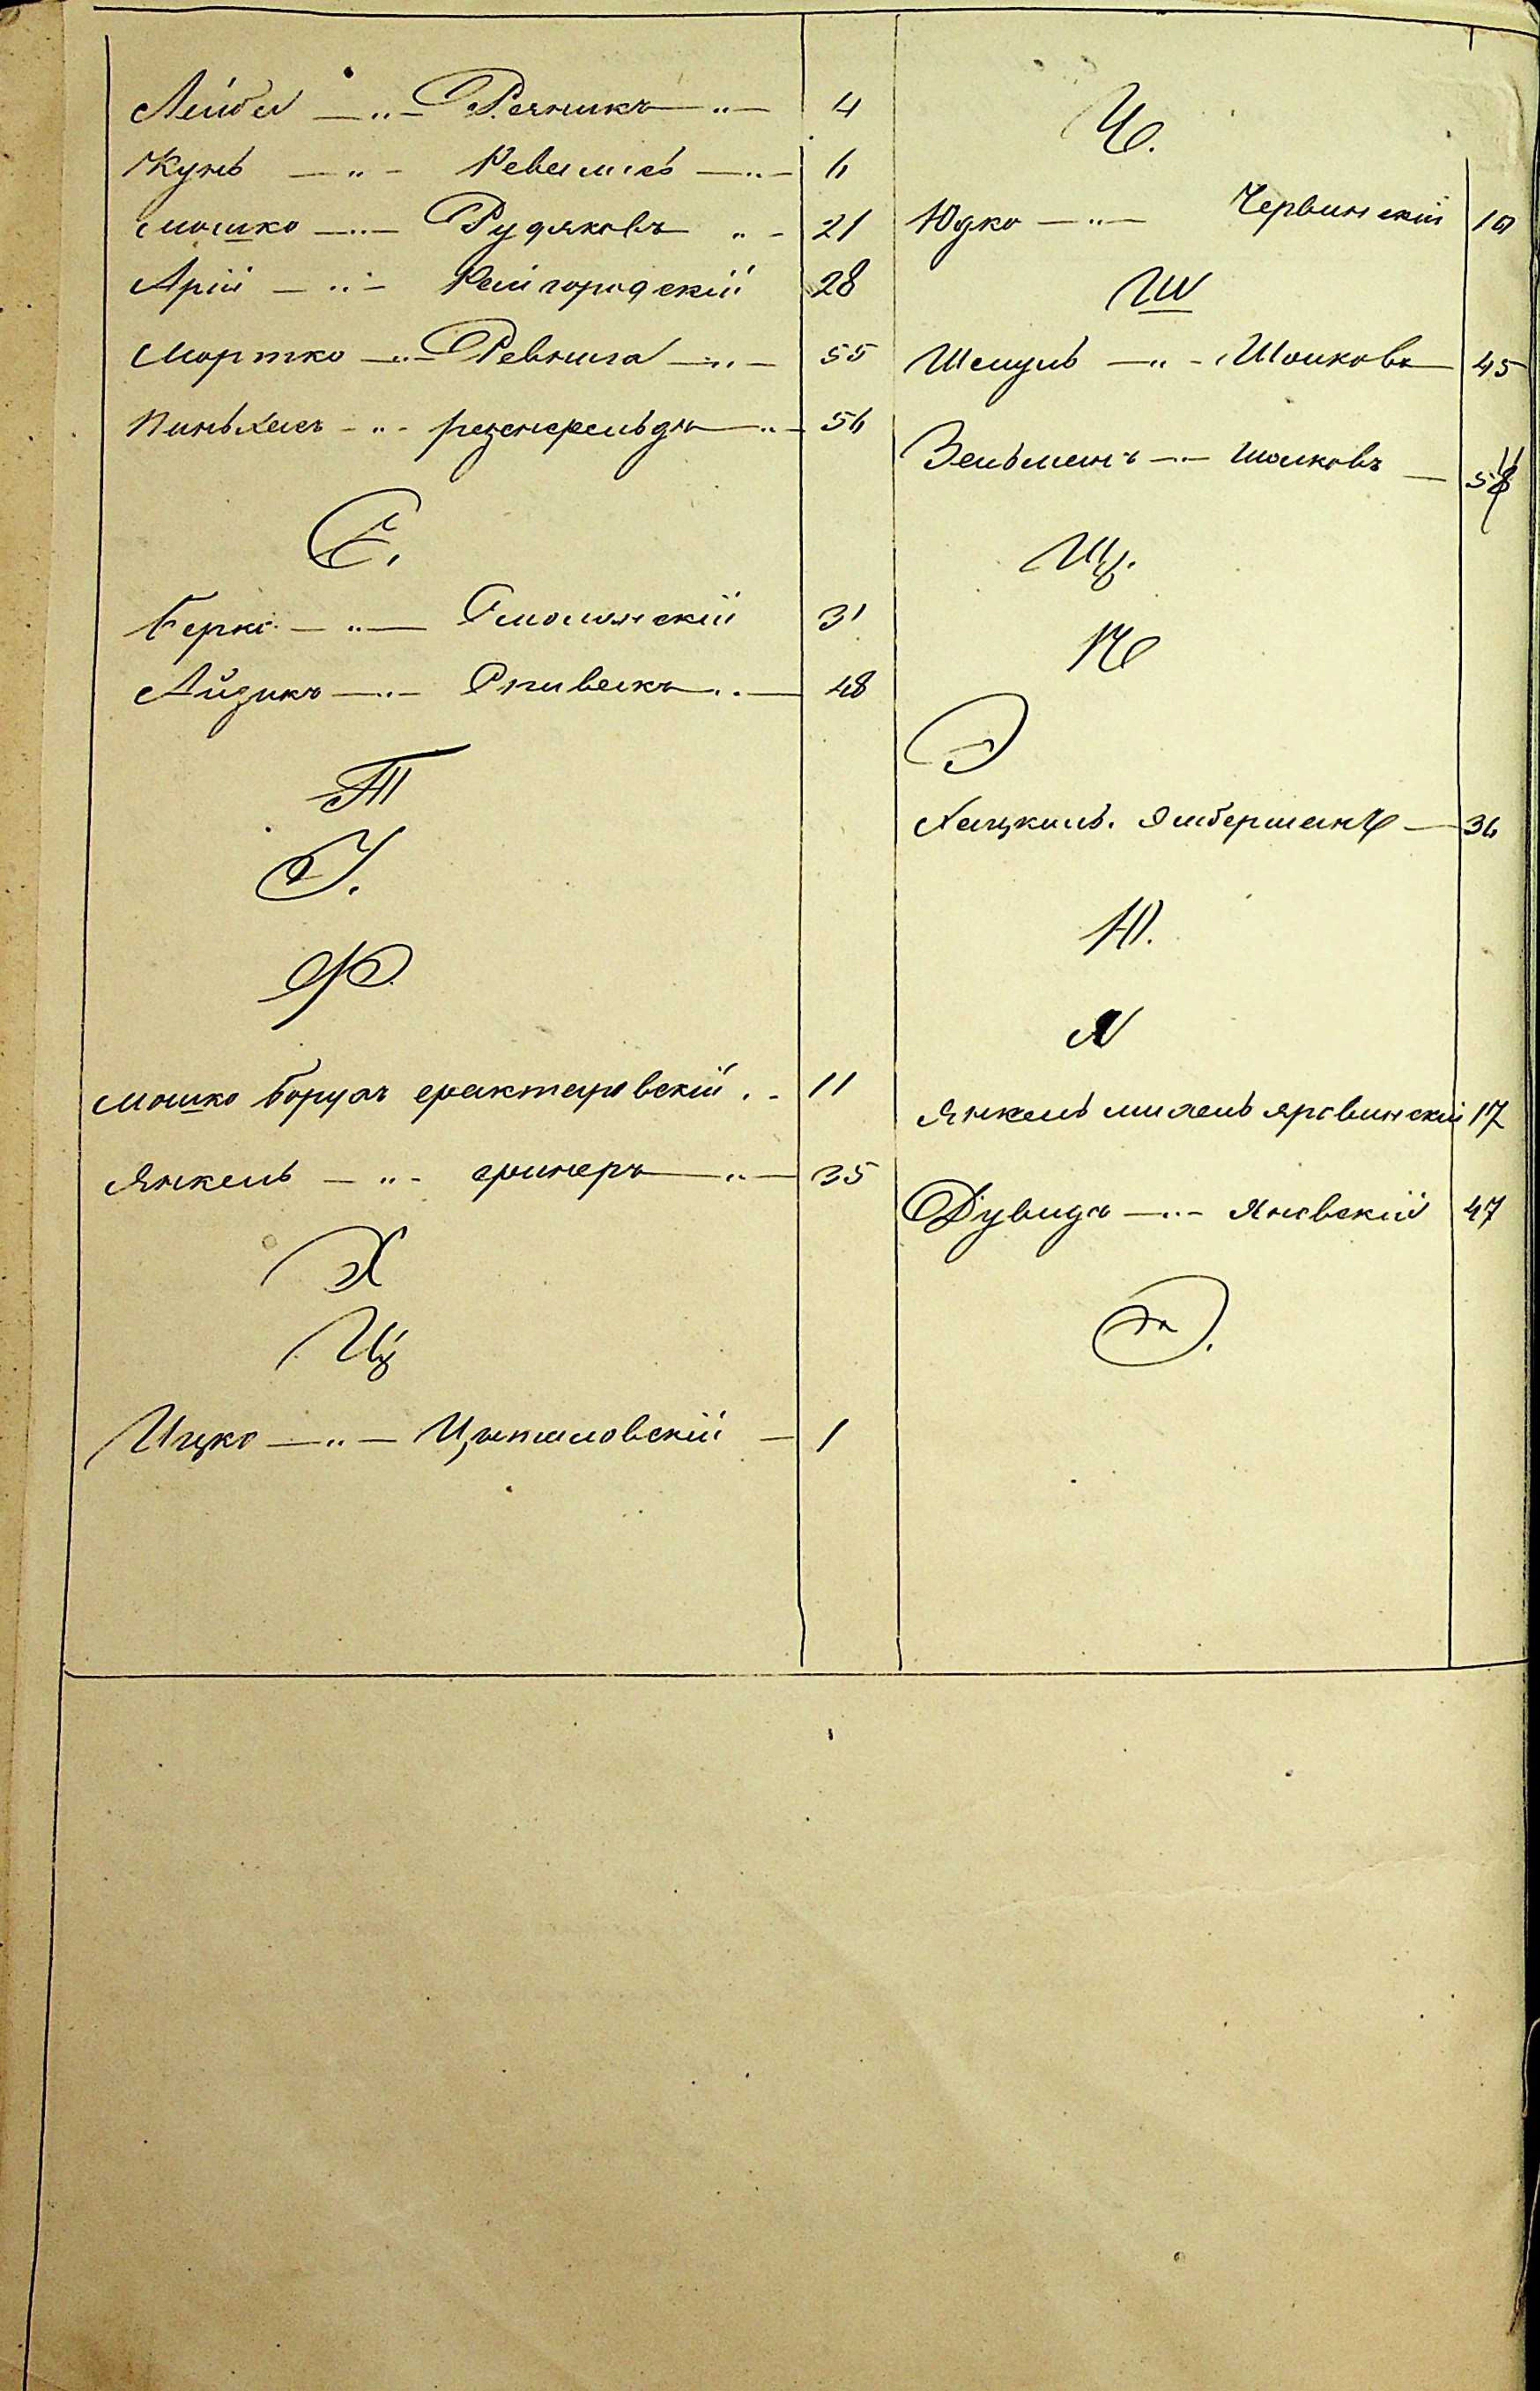 Лейба — " — Резникъ " — 4
Кунь — " — Ревичъ — " — 6
Мошко — " — Рудяковъ " — 21
Арій — " — Райгородскій 28
Мортко — " — Ревзина — " — 55
Пиньхасъ — " — розенфельдъ — " — 56
С.
Берко — " — Смолянскій 31
Айзикъ — " — Спивакъ " — 48
Т
У.
Ф
Мошко Борухъ фрактаровскій . — 11
Янкель — " — финеръ — " — 35
Х
Ц
Ицко — " — Цыпиловскій — 1
Ч.
Юдко — " — Червинскій 10
Ш
Шмуль — " — Шойковъ — 45
Зельманъ — " — Шойковъ — 58
Щ.
Э
Хацкиль. Элберманъ — 36
Ю.
Я
Янкель михель яровинскій 17
Дувидъ — " — Яновскій 47
Ѳ.